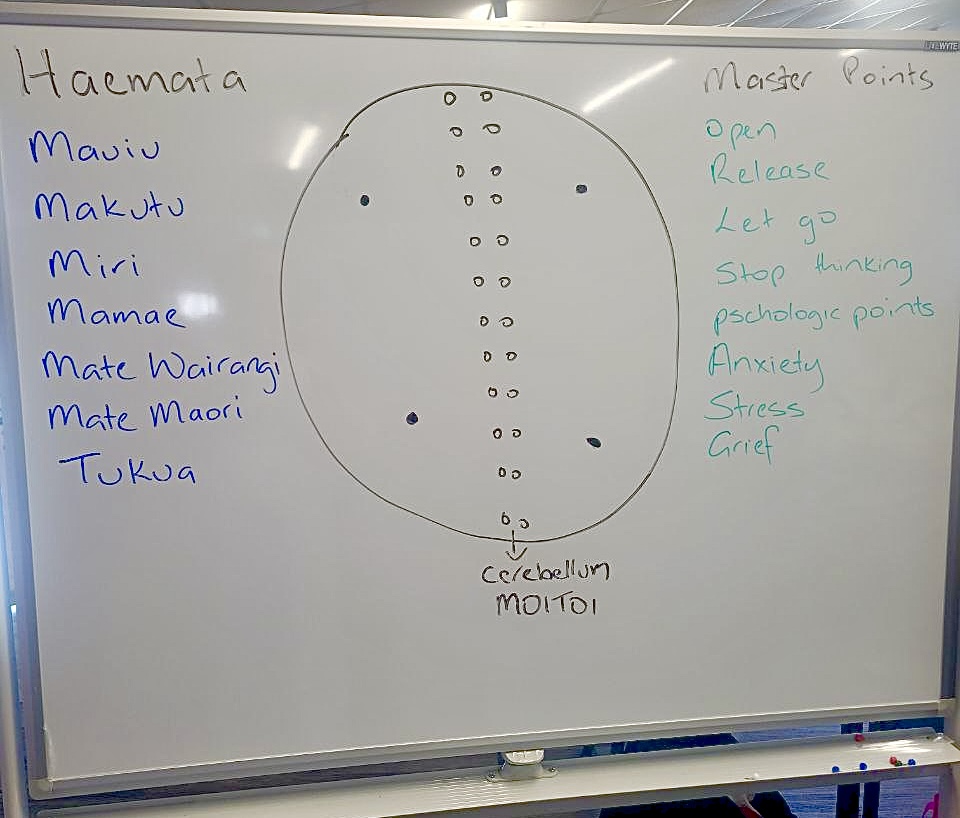 Haemata
Mauiu
Makutu
Miri
Mamae
Mate Wairangi
Mate Maori
Tukua
Cerebellum
MOITOI
Master Points
Open
Release
Let go
Stop thinking
pschologic points
Anxiety
Stress
Grief